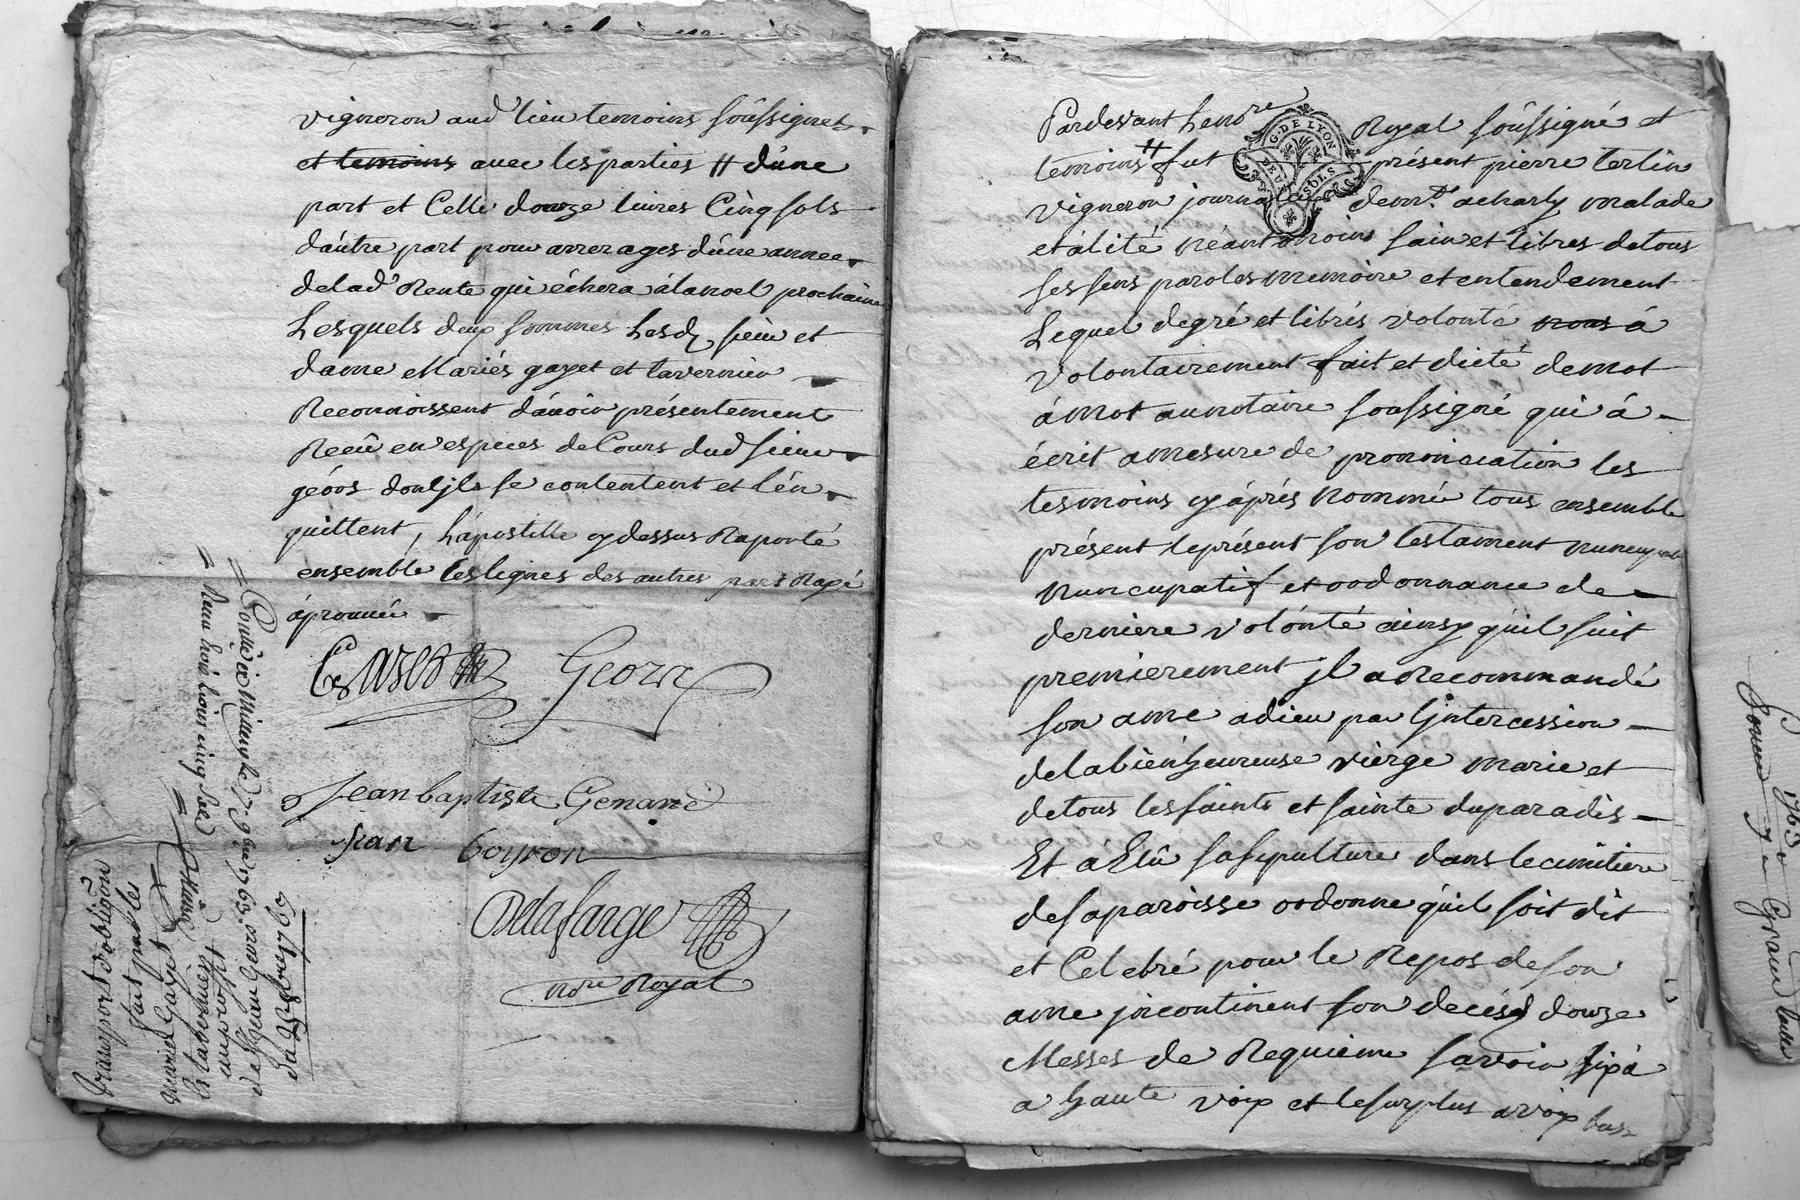 vigneron aud lieu temoins soûssignés
et temoins avec les parties # dúne
part et Celle douze livres Cinq sols
dáutre part pour arrerages dúne année
delad Rente qui échera álanoel prochaine
Lesquels deux sommes Lesd sieur et
dame Mariés gayet et tavernier
Reconnoissent dávoir présentement
Reçû en especes de Cours dud sieur
géors dont jls se contentent et lén
quittent, Lápostille cy dessus Raporté
ensemble les lignes des autres part Rayé
áprouvée
Geors
Jean baptiste Genave
Jean boyron
Delafarge
nore Royal
transport dobligaon
fait par les
mariés Gayet
et tavernier
au profit
de sr jean Geors
du 28 8bre 1763
Conlle à Millery le 7 9bre 1763
Reçu trois livres cinq sols
G. DE LYON
SOLS
Pardevant Le nore Royal soûssigné et
temoins # fut présent pierre terlin
vigneron journalier demt a charly malade
et álité néantmoins sain et libres de tous
ses sens paroles memoire et entendement
Lequel de gré et librés volonté nous á
volontairement fait et dicté de mot
á mot au notaire soussigné qui á
écrit a mesure de prononciation les
tesmoins cy áprés nommé tous ensemble
présent le présent son testament
nuncupatif et ordonnance de
derniere volónté ainsy quíl suit
premierement jl a Recommandé
son ame a dieu par L'jntercession
de la biénheureuse vierge marie et
de tous les saints et sainte du paradis
Et á Elû sa sepulture dans le cimitiere
de sa paroisse ordonne quíl soit dit
et Celebré pour le Repos de son
ame jncontinent son decés douze
Messes de Requieme savoir six á
a haute voix et le surplus a voix bass
1763